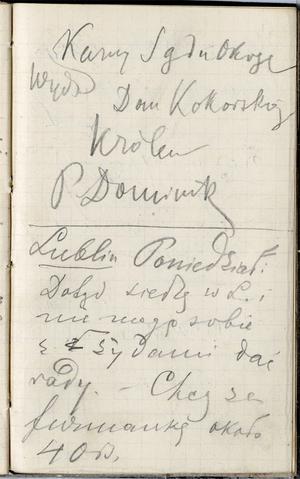 Karny Sądu Okrę
Wydz
Dom Kokorskiej
Królew
P Dominik
Lublin Poniedział:
Dotąd siedzę w L. i
nie mogę sobie
z żydami dać
rady. – Chcą za
furmankę około
40 rs.